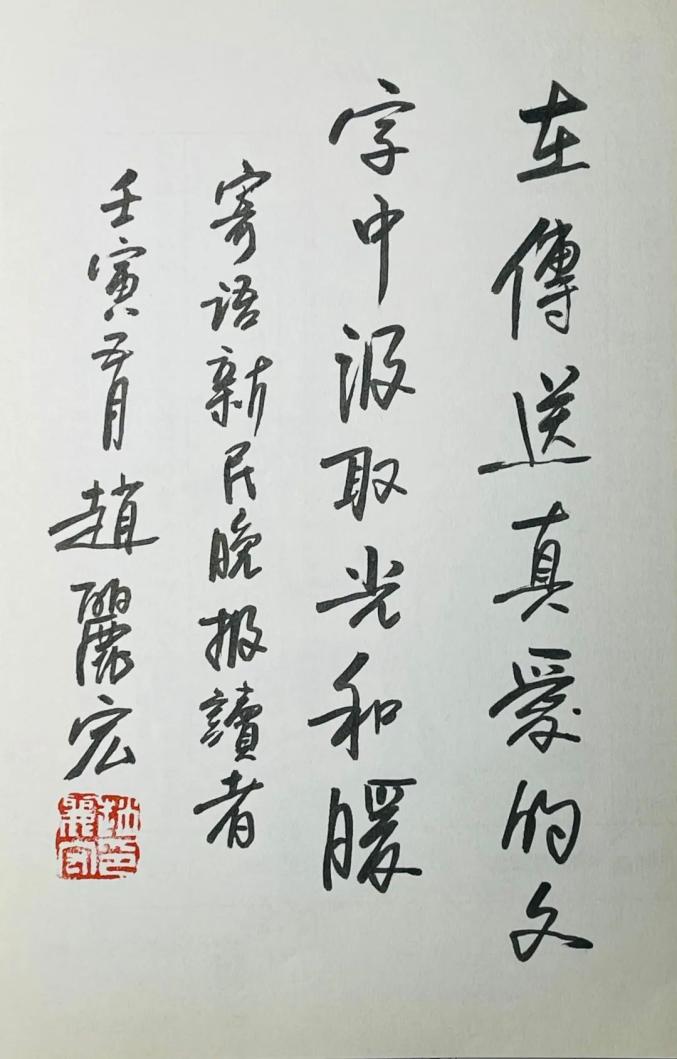 在傳送真愛的文
字中汲取光和暖
寄语新民晚报讀者
壬寅五月趙麗宏
趙麗宏